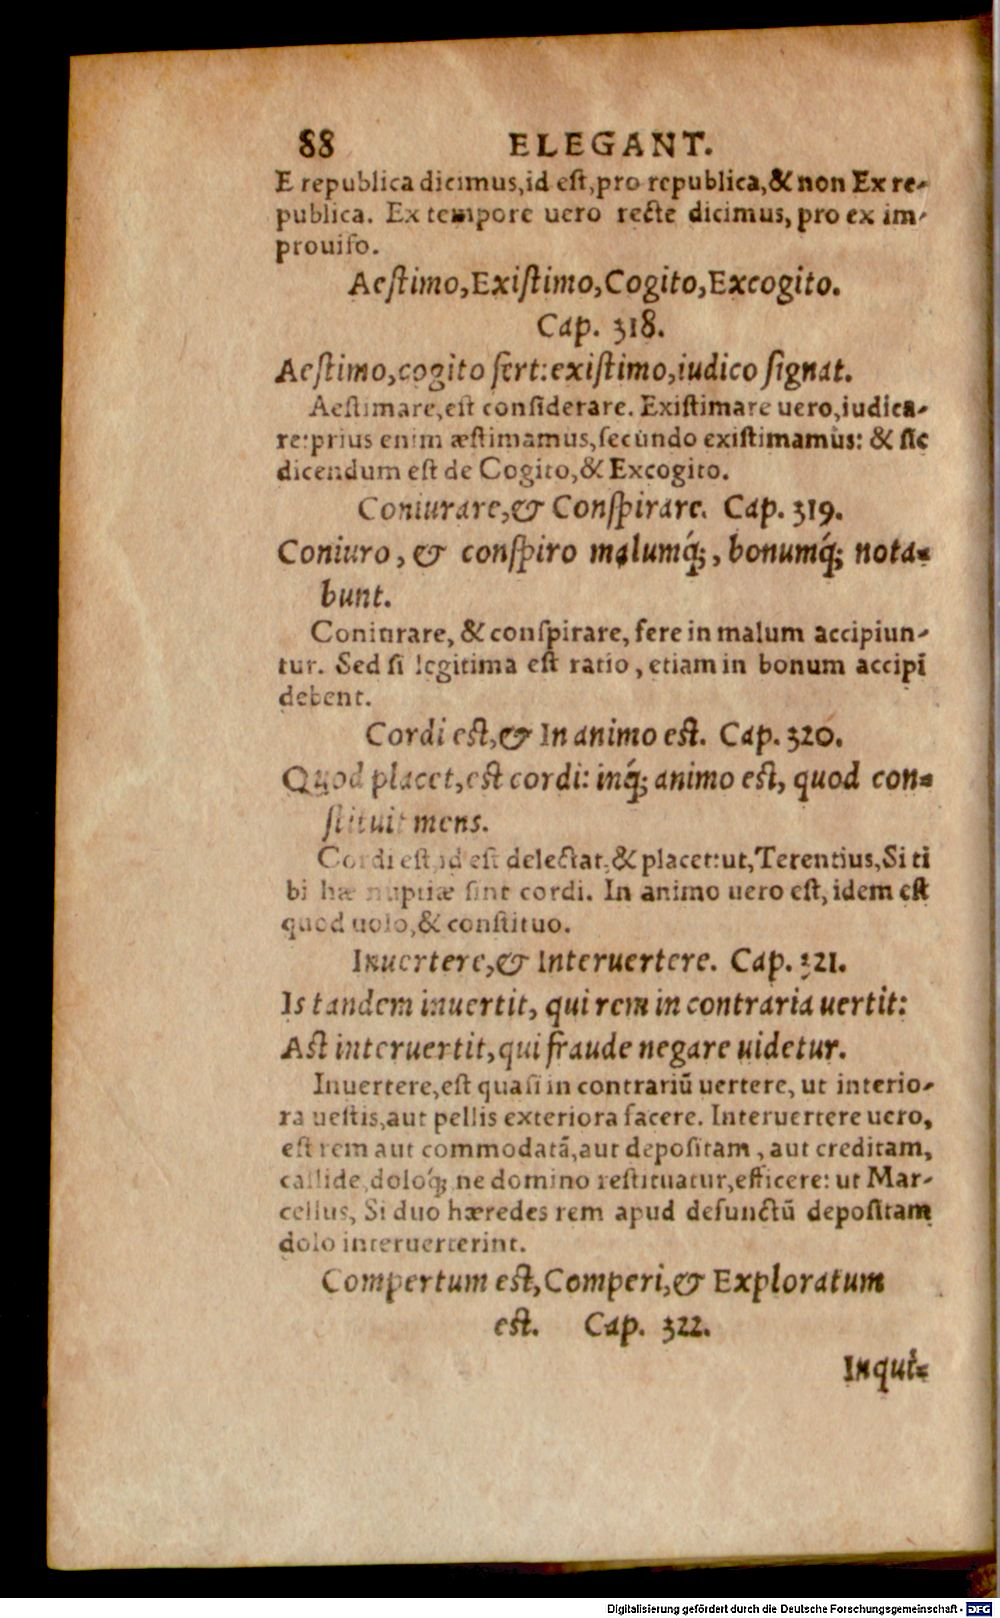 88 ELEGANT.
E republica dicimus, id eſt, pro republica, & non Ex re-
publica. Ex tempore uero recte dicimus, pro ex im-
prouiſo.
Aeſtimo, Exiſtimo, Cogito, Excogito.
Cap. 318.
Aeſtimo, cogito fert: exiſtimo, iudico ſignat.
Aeſtimare, eſt conſiderare. Exiſtimare uero, iudica-
re: prius enim æſtimamus, ſecundo exiſtimamus: & ſic
dicendum eſt de Cogito, & Excogito.
Coniurare, & Conſpirare. Cap. 319.
Coniuro, & conſpiro malumq́;, bonumq́; nota-
bunt.
Coniurare, & conſpirare, fere in malum accipiun-
tur. Sed ſi legitima eſt ratio, etiam in bonum accipi
debent.
Cordi eſt, & In animo eſt. Cap. 320.
Quod placet, eſt cordi: inq́; animo eſt, quod con-
ſtituit mens.
Cordi eſt, id eſt delectat, & placet: ut, Terentius, Si ti
bi hæ nuptiæ ſint cordi. In animo uero eſt, idem eſt
quod uolo, & conſtituo.
Inuertere, & Interuertere. Cap. 321.
Is tandem inuertit, qui rem in contraria uertit:
Aſt interuertit, qui fraude negare uidetur.
Inuertere, eſt quaſi in contrariū uertere, ut interio-
ra ueſtis, aut pellis exteriora facere. Interuertere uero,
eſt rem aut commodatā, aut depoſitam, aut creditam,
callide, doloq́; ne domino reſtituatur, efficere: ut Mar-
cellus, Si duo hæredes rem apud defunctū depoſitam
dolo interuerterint.
Compertum eſt, Comperi, & Exploratum
eſt. Cap. 322.
Inqui-
Digitalisierung gefördert durch die Deutsche Forschungsgemeinschaft - DFG